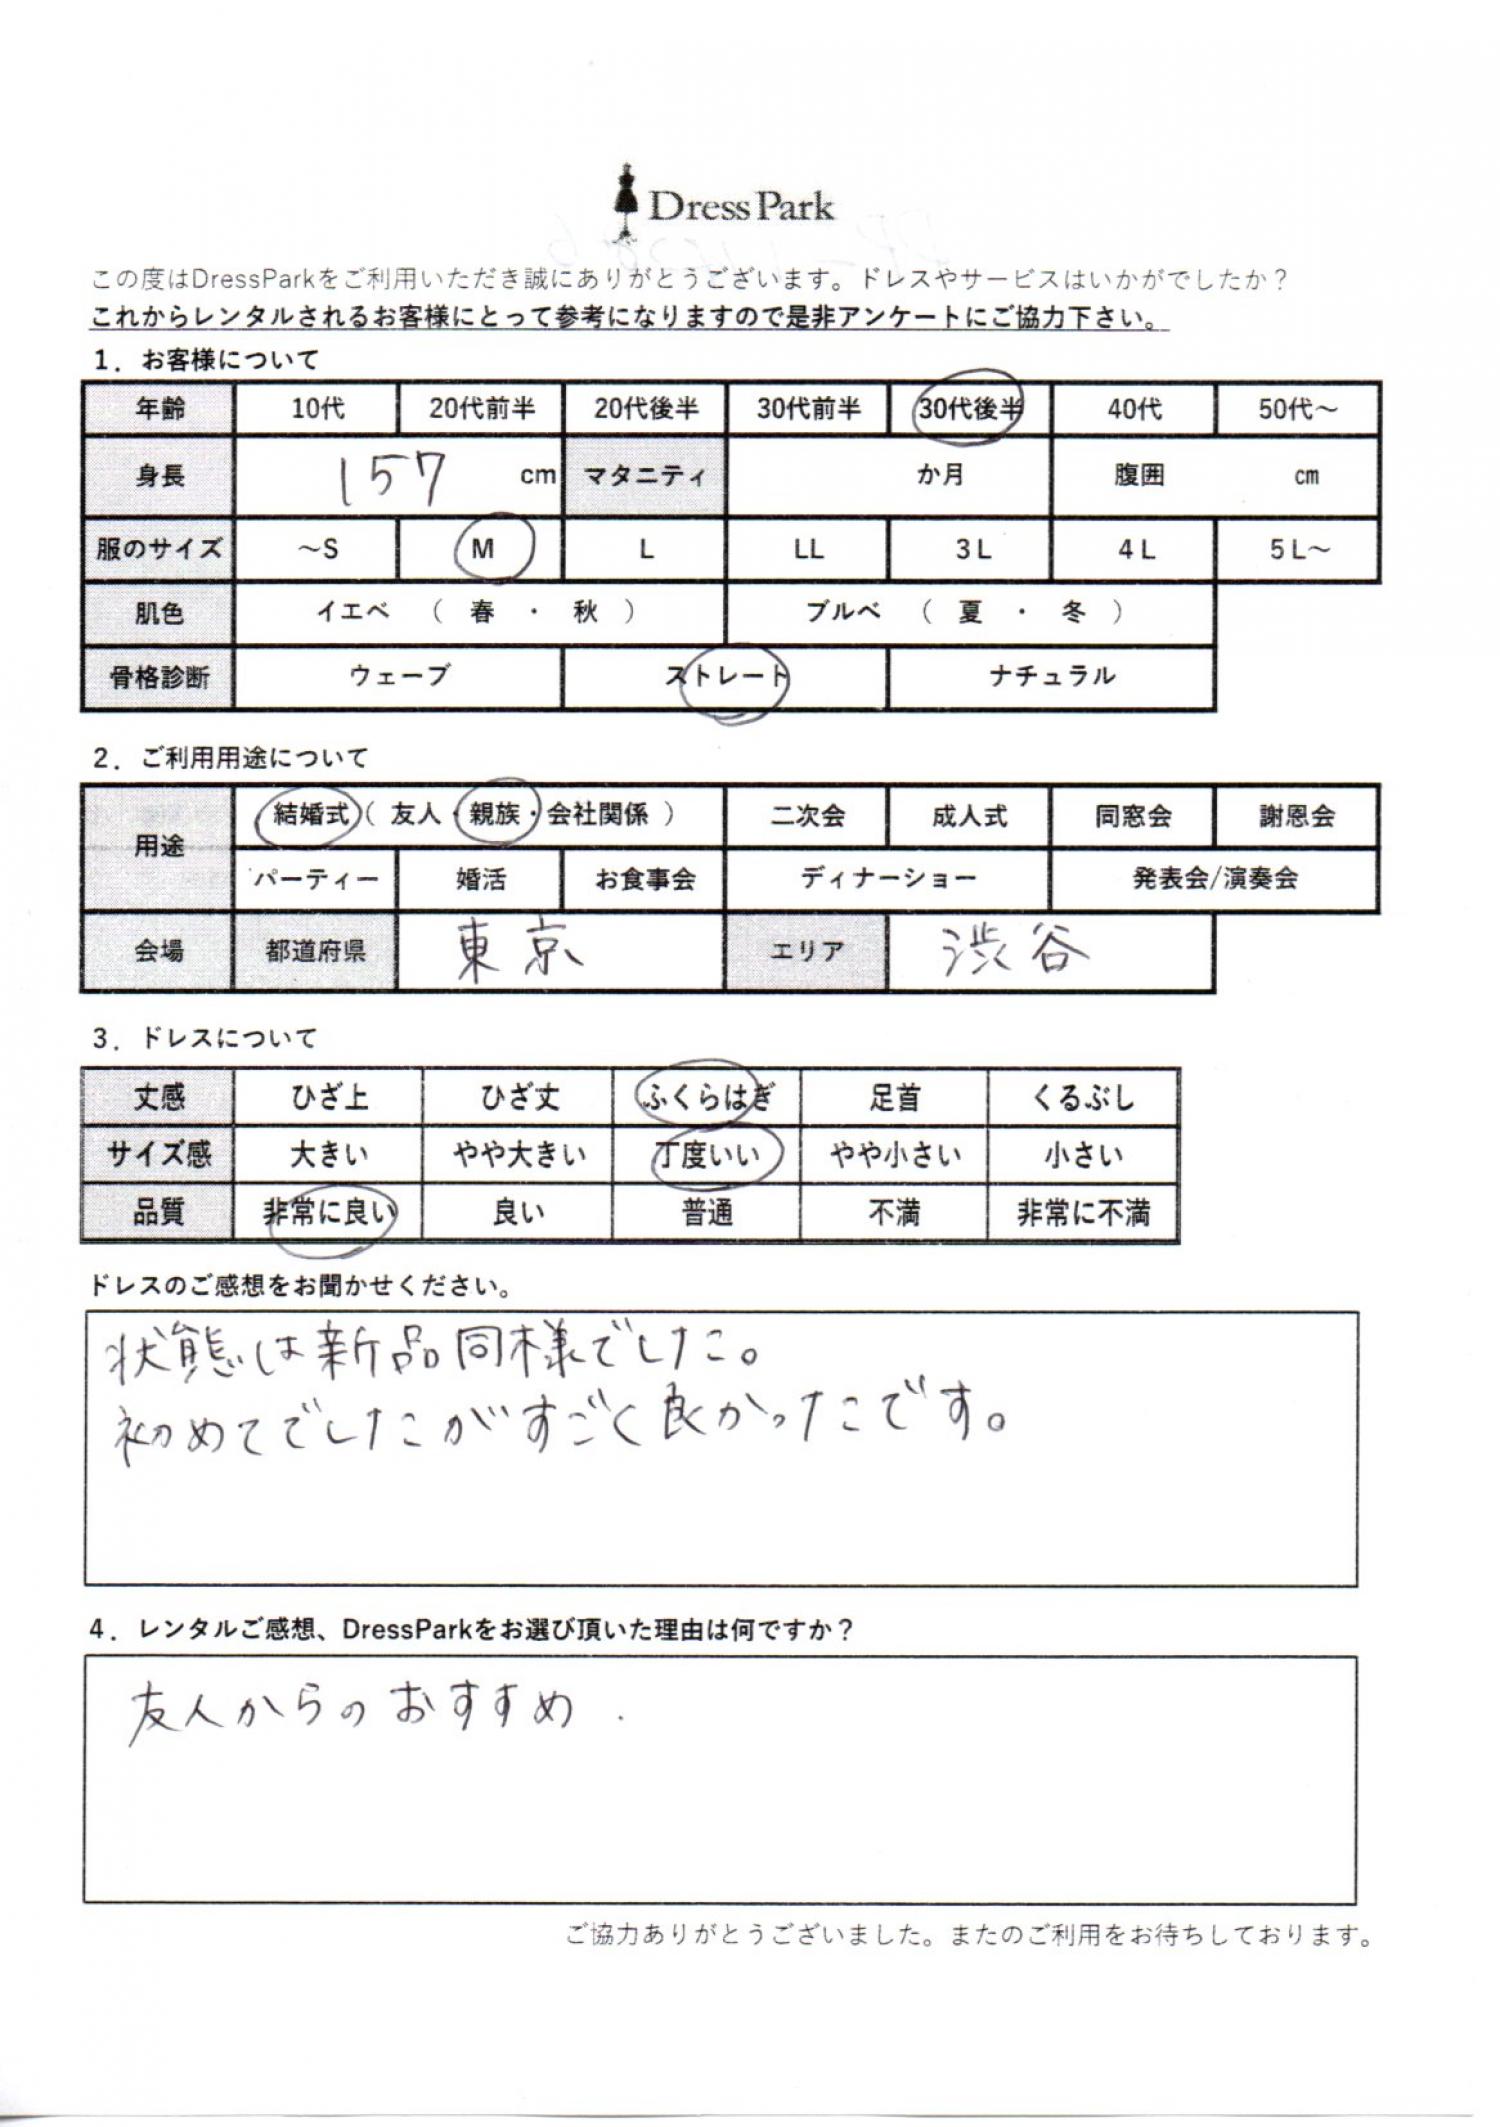 Dress Park
この度はDressParkをご利用いただき誠にありがとうございます。ドレスやサービスはいかがでしたか？
これからレンタルされるお客様にとって参考になりますので是非アンケートにご協力下さい。
1．お客様について
年齢 10代 20代前半 20代後半 30代前半 30代後半 40代 50代～
身長 157 cm マタニティ か月 腹囲 cm
服のサイズ ～S M L LL 3L 4L 5L～
肌色 イエベ （ 春 ・ 秋 ） ブルベ （ 夏 ・ 冬 ）
骨格診断 ウェーブ ストレート ナチュラル
2．ご利用用途について
用途 結婚式（ 友人・親族・会社関係 ） 二次会 成人式 同窓会 謝恩会
パーティー 婚活 お食事会 ディナーショー 発表会/演奏会
会場 都道府県 東京 エリア 渋谷
3．ドレスについて
丈感 ひざ上 ひざ丈 ふくらはぎ 足首 くるぶし
サイズ感 大きい やや大きい 丁度いい やや小さい 小さい
品質 非常に良い 良い 普通 不満 非常に不満
ドレスのご感想をお聞かせください。
状態は新品同様でした。
初めてでしたがすごく良かったです。
4．レンタルご感想、DressParkをお選び頂いた理由は何ですか？
友人からのおすすめ．
ご協力ありがとうございました。またのご利用をお待ちしております。